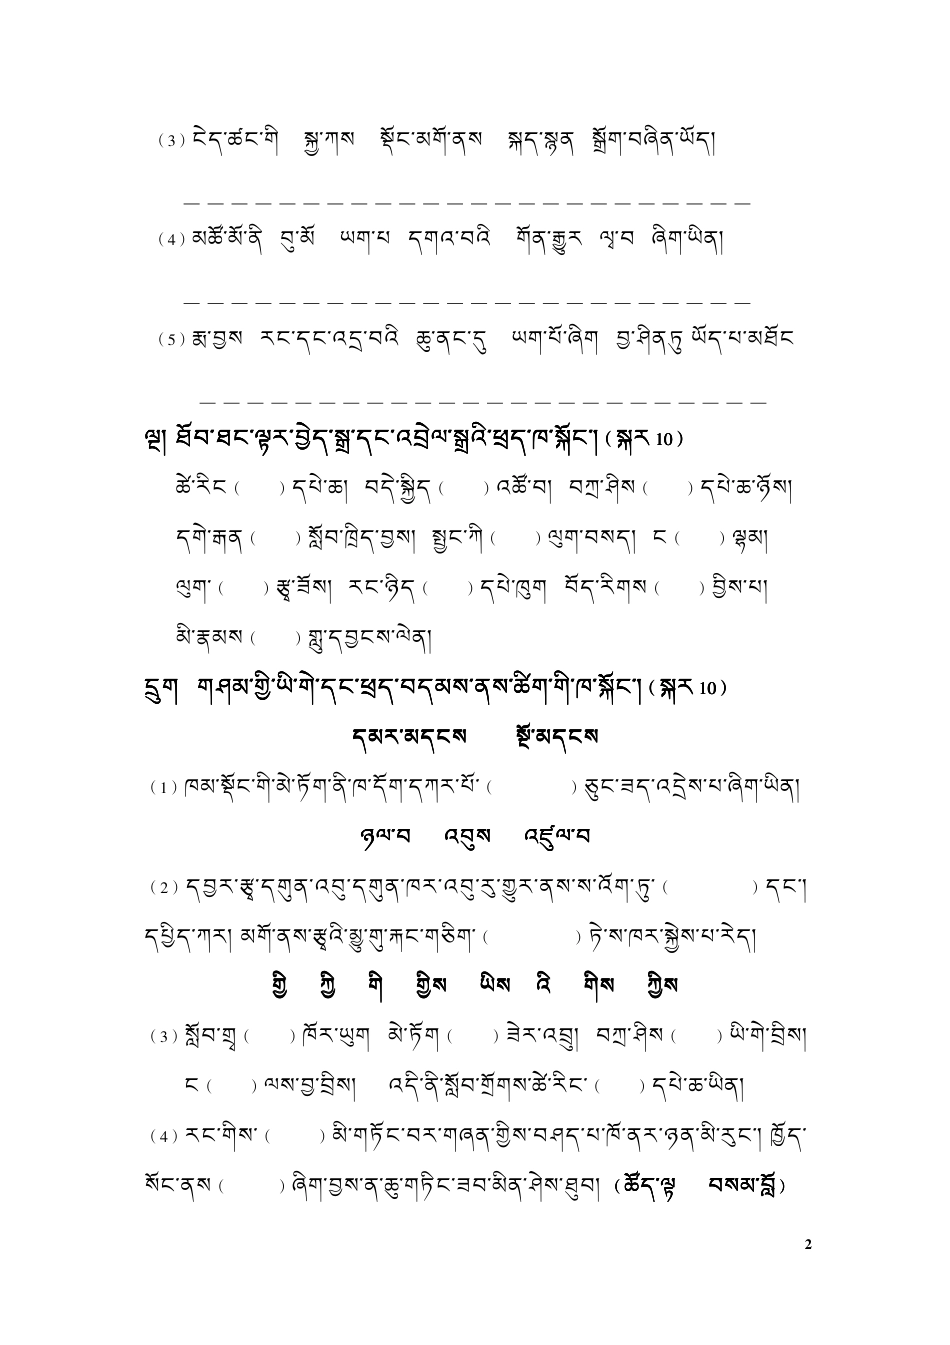 (3) ངེད་ཚང་གི སྐྱ་ཀས སྡོང་མགོ་ནས སྐད་སྙན སྒྲོག་བཞིན་ཡོད།
_ _ _ _ _ _ _ _ _ _ _ _ _ _ _ _ _ _ _ _ _ _ _ _
(4) མཚོ་མོ་ནི བུ་མོ ཡག་པ དགའ་བའི གོན་རྒྱུར ལྭ་བ ཞིག་ཡིན།
_ _ _ _ _ _ _ _ _ _ _ _ _ _ _ _ _ _ _ _ _ _ _ _
(5) རྨ་བྱས རང་དང་འདྲ་བའི ཆུ་ནང་དུ ཡག་པོ་ཞིག བྱ་ཤིན་ཏུ ཡོད་པ་མཐོང
_ _ _ _ _ _ _ _ _ _ _ _ _ _ _ _ _ _ _ _ _ _ _ _
ལྔ། ཐོབ་ཐང་ལྟར་བྱེད་སྒྲ་དང་འབྲེལ་སྒྲའི་ཕྲད་ཁ་སྐོང་། (སྐར 10)
ཚེ་རིང ( ) དཔེ་ཆ། བདེ་སྐྱིད ( ) འཚོ་བ། བཀྲ་ཤིས ( ) དཔེ་ཆ་ཉོས།
དགེ་རྒན ( ) སློབ་ཁྲིད་བྱས། སྤྱང་ཀི ( ) ལུག་བསད། ང ( ) ལྷམ།
ལུག་ ( ) རྩྭ་ཟོས། རང་ཉིད ( ) དཔེ་ཁུག བོད་རིགས ( ) བྱིས་པ།
མི་རྣམས ( ) གླུ་དབྱངས་ལེན།
དྲུག གཤམ་གྱི་ཡི་གེ་དང་ཕྲད་བདམས་ནས་ཚིག་གི་ཁ་སྐོང་། (སྐར 10)
དམར་མདངས སྔོ་མདངས
(1) ཁམ་སྡོང་གི་མེ་ཏོག་ནི་ཁ་དོག་དཀར་པོ་ ( ) ཅུང་ཟད་འདྲེས་པ་ཞིག་ཡིན།
ཉལ་བ འབུས འཛུལ་བ
(2) དབྱར་རྩྭ་དགུན་འབུ་དགུན་ཁར་འབུ་རུ་གྱུར་ནས་ས་འོག་ཏུ་ ( ) དང་།
དཔྱིད་ཀར། མགོ་ནས་རྩྭའི་མྱུ་གུ་རྐང་གཅིག་ ( ) ཏེ་ས་ཁར་སྐྱེས་པ་རེད།
གྱི ཀྱི གི གྱིས ཡིས འི གིས ཀྱིས
(3) སློབ་གྲྭ ( ) ཁོར་ཡུག མེ་ཏོག ( ) ཟེར་འབྲུ། བཀྲ་ཤིས ( ) ཡི་གེ་བྲིས།
ང ( ) ལས་བྱ་བྲིས། འདི་ནི་སློབ་གྲོགས་ཚེ་རིང་ ( ) དཔེ་ཆ་ཡིན།
(4) རང་གིས་ ( ) མི་གཏོང་བར་གཞན་གྱིས་བཤད་པ་ཁོ་ནར་ཉན་མི་རུང་། ཁྱོད་
སོང་ནས ( ) ཞིག་བྱས་ན་ཆུ་གཏིང་ཟབ་མིན་ཤེས་ཐུབ། (ཚོད་ལྟ བསམ་བློ)
2